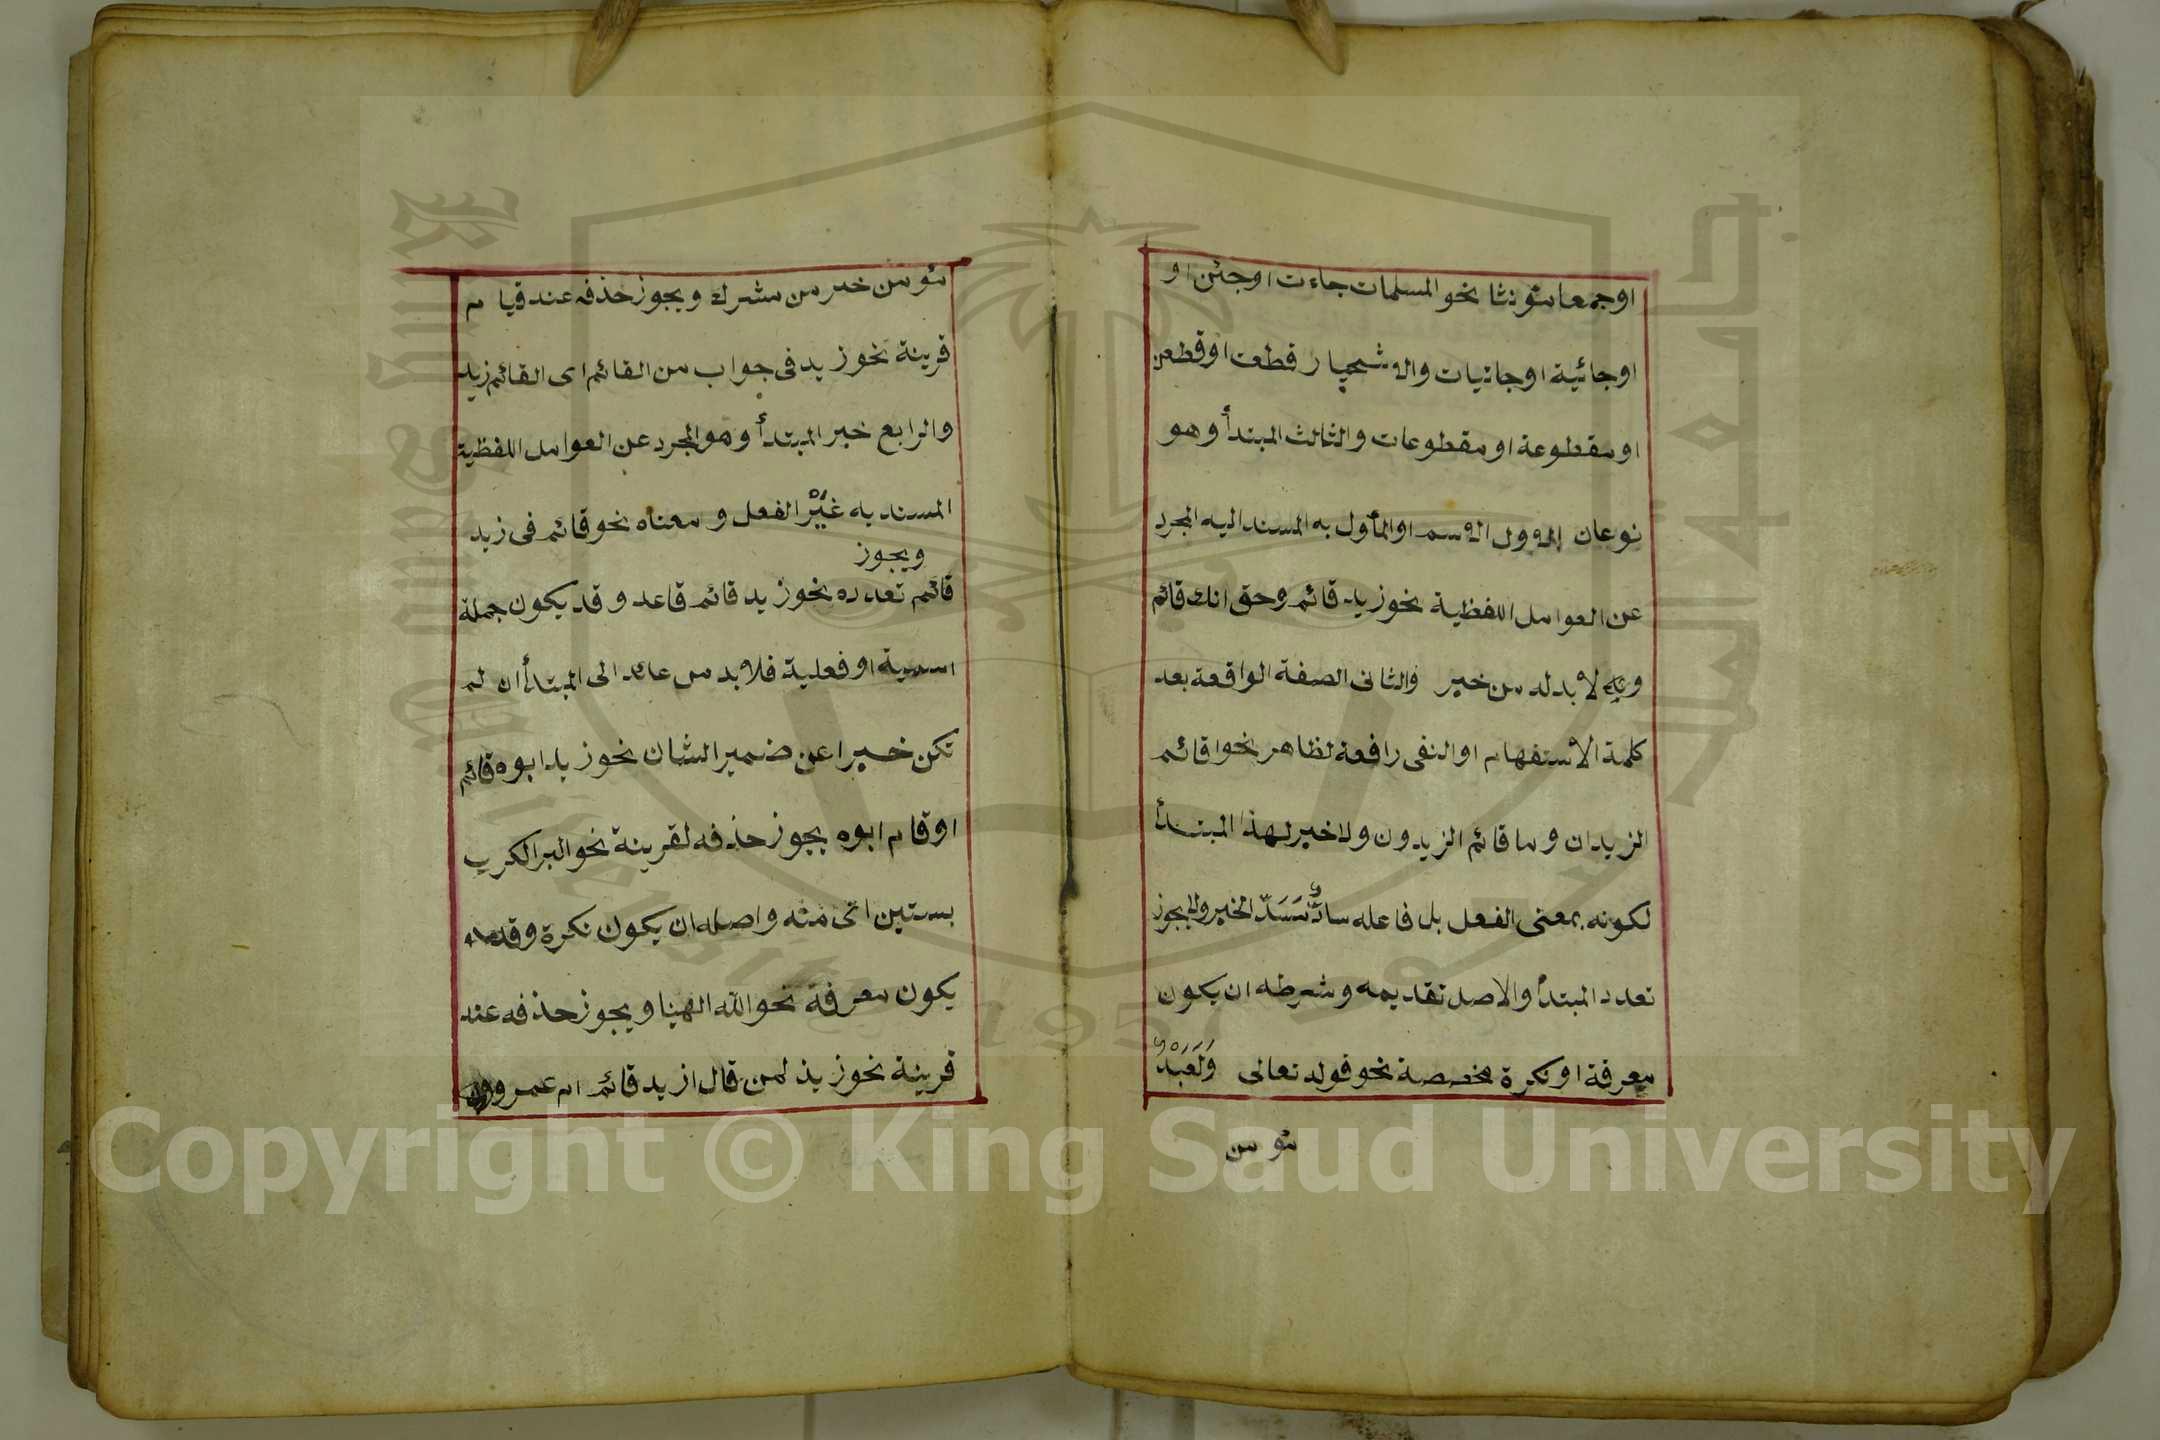 او جمعا مؤنثا نحو المسلمات جاءت او جئن او
او جائية او جائيات والاشجار قطعت او قطعن
او مقطوعة او مقطوعات والثالث المبتدأ وهو
نوعان الاول الاسم او المأول به المسند اليه المجرد
عن العوامل اللفظية نحو زيد قائم وحق انك قائم
لا بد له من خبر والثانى الصفة الواقعة بعد
كلمة الاستفهام او النفى رافعة لظاهر نحو اقائم
الزيدان وما قائم الزيدون ولا خبر لهذا المبتدأ
لكونه بمعنى الفعل بل فاعله سادٌّ مَسَدَّ الخبر ولا يجوز
تعدد المبتدأ والاصل تقديمه وشرطه ان يكون
معرفة او نكرة مخصصة نحو قوله تعالى وَلَعَبْدٌ
مؤمن
مؤمن خير من مشرك ويجوز حذفه عند قيام
قرينة نحو زيد فى جواب من القائم اى القائم زيد
والرابع خبر المبتدأ وهو المجرد عن العوامل اللفظية
المسند به غَيْر الفعل ومعناه نحو قائم فى زيد
ويجوز
قائم تعدده نحو زيد قائم قاعد وقد يكون جملة
اسمية او فعلية فلا بد من عائد الى المبتدأ ان لم
تكن خبرا عن ضمير الشان نحو زيد ابوه قائم
او قام ابوه يجوز حذفه لقرينة نحو البر الكر ب
بستين اى منه واصله ان يكون نكرة وقد
يكون معرفة نحو الله الهنا ويجوز حذفه عند
قرينة نحو زيد لمن قال ازيد قائم ام عمرو
Copyright © King Saud University
King Saud University
1957
جامعة الملك سعود